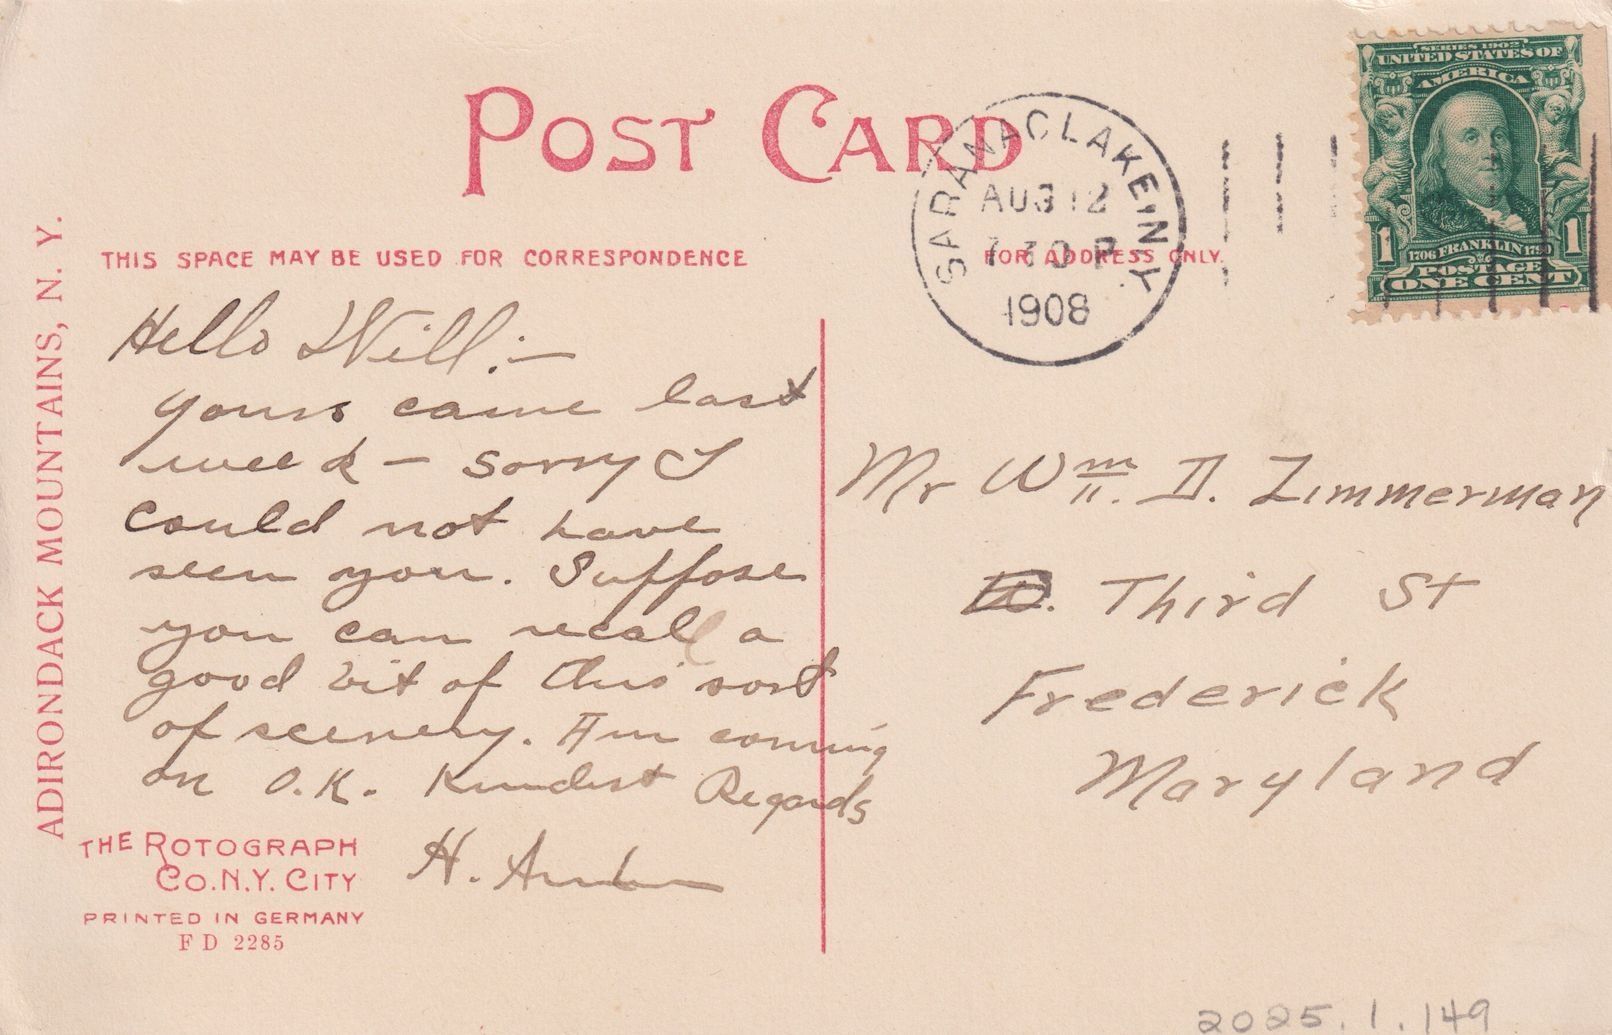 POST CARD
THIS SPACE MAY BE USED FOR CORRESPONDENCE
FOR ADDRESS ONLY.
ADIRONDACK MOUNTAINS, N. Y.
SARANAC LAKE, N.Y.
AUG 12
7 30 P
1908
SERIES 1902
UNITED STATES OF
AMERICA
1706 FRANKLIN 1790
POSTAGE
1 ONE CENT 1
Hello Will:—
Yours came last
week – sorry I
could not have
seen you. Suppose
you can recall a
good bit of this sort
of scenery. Am coming
on O.K. Kindest Regards
H.
Mr Wm. D. Zimmerman
W. Third St
Frederick
Maryland
THE ROTOGRAPH
CO. N.Y. CITY
PRINTED IN GERMANY
F D 2285
2025.1.149